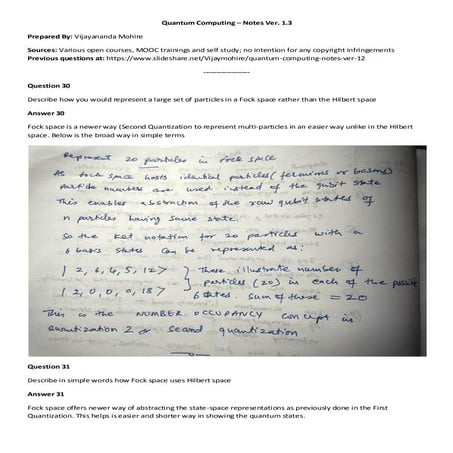 Quantum Computing – Notes Ver. 1.3
Prepared By: Vijayananda Mohire
Sources: Various open courses, MOOC trainings and self study; no intention for any copyright infringements
Previous questions at: https://www.slideshare.net/Vijaymohire/quantum-computing-notes-ver-12
--------------------
Question 30
Describe how you would represent a large set of particles in a Fock space rather than the Hilbert space
Answer 30
Fock space is a newer way (Second Quantization to represent multi-particles in an easier way unlike in the Hilbert
space. Below is the broad way in simple terms
Represent 20 particles in Fock space
As Fock space hosts identical particles (fermions or bosons)
particle numbers are used instead of the qubit state
This enables abstraction of the raw qubit states of
n particles having same state.
So the ket notation for 20 particles with a
6 basis states can be represented as:
| 2, 6, 4, 5, 12> } These illustrate number of
particles (20) in each of the possible
| 2, 0, 0, 0, 18> 6 states. Sum of these = 20
This is the NUMBER OCCUPANCY concept in
quantization 2 or second quantization
Question 31
Describe in simple words how Fock space uses Hilbert space
Answer 31
Fock space offers newer way of abstracting the state-space representations as previously done in the First
Quantization. This helps is easier and shorter way in showing the quantum states.